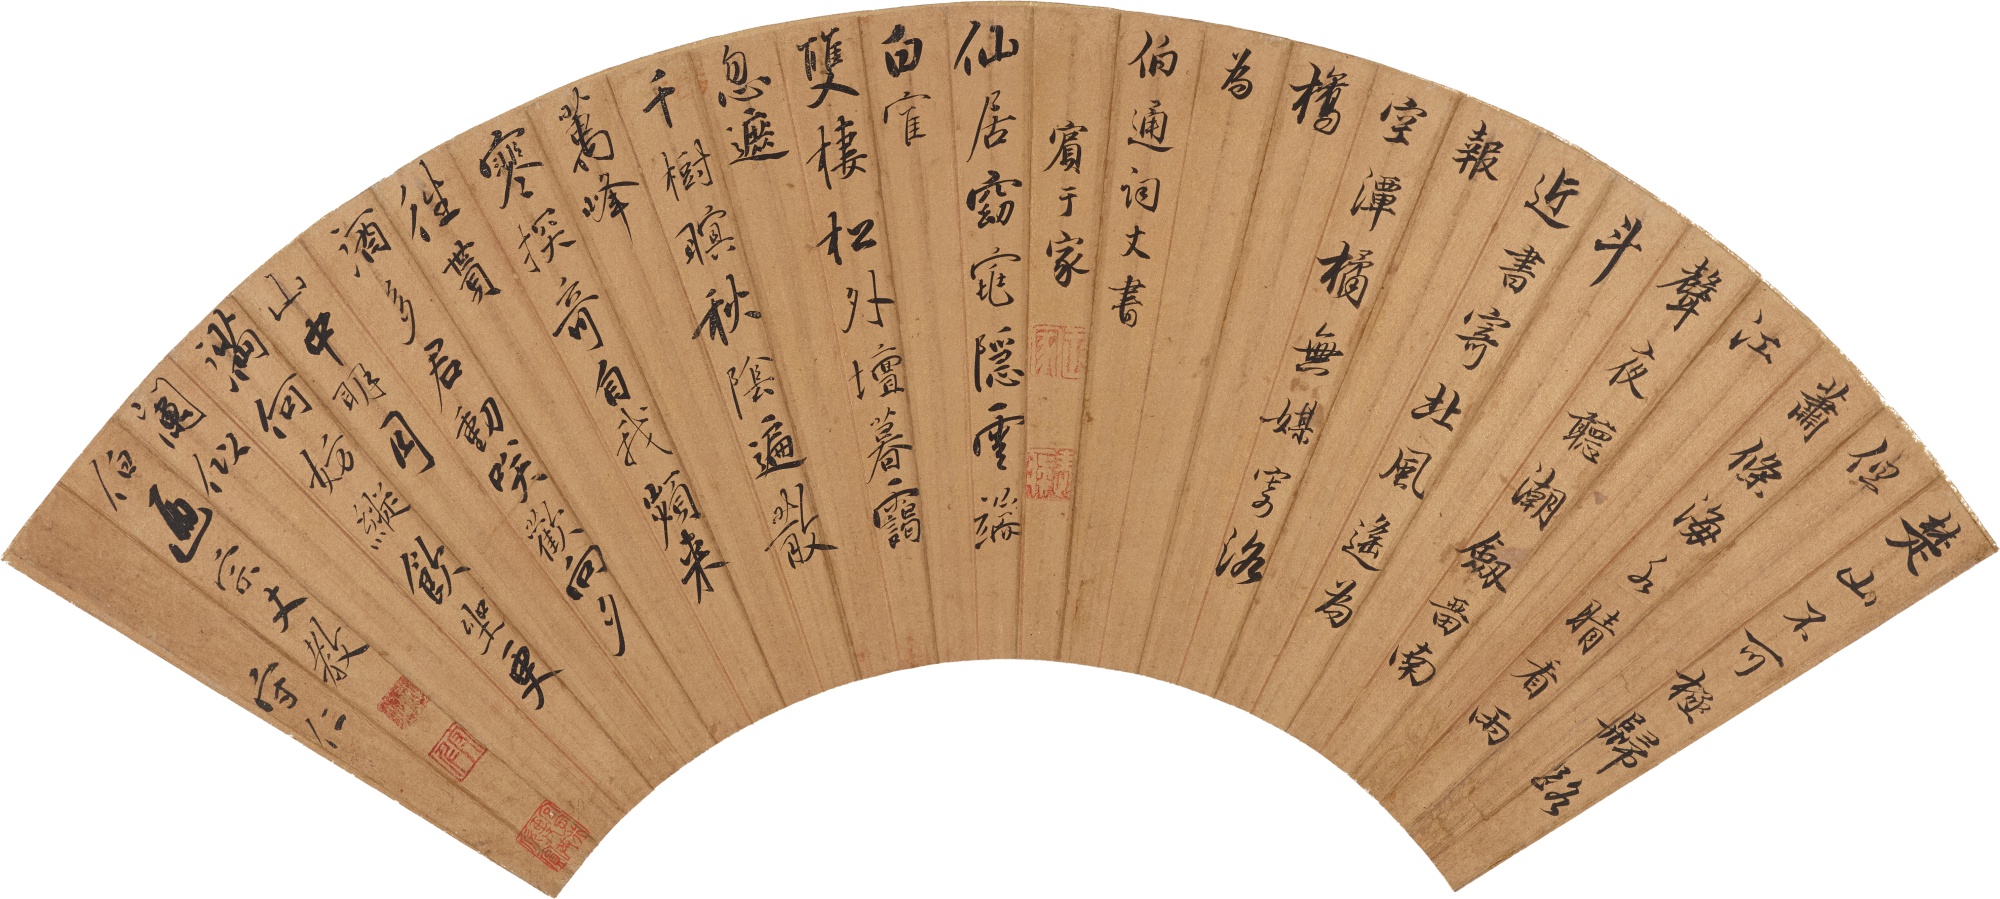 楚山不可極歸路
但
蕭條海水晴看雨
江
聲夜聽潮劍留南
斗
近書寄北風遙為
報
空潭橘無媒寄洛
橋
為
伯通詞丈書
賓于家
仙居窈窕隱雲端
白隺
雙棲松外壇暮靄
忽遮
千樹暝秋陰遍散
萬峰
寒探奇自我頻來
往貰
酒多君動笑歡向夕
山中明月
滿何妨縱飲坐更
闌似
伯遠宗丈教
宗仁